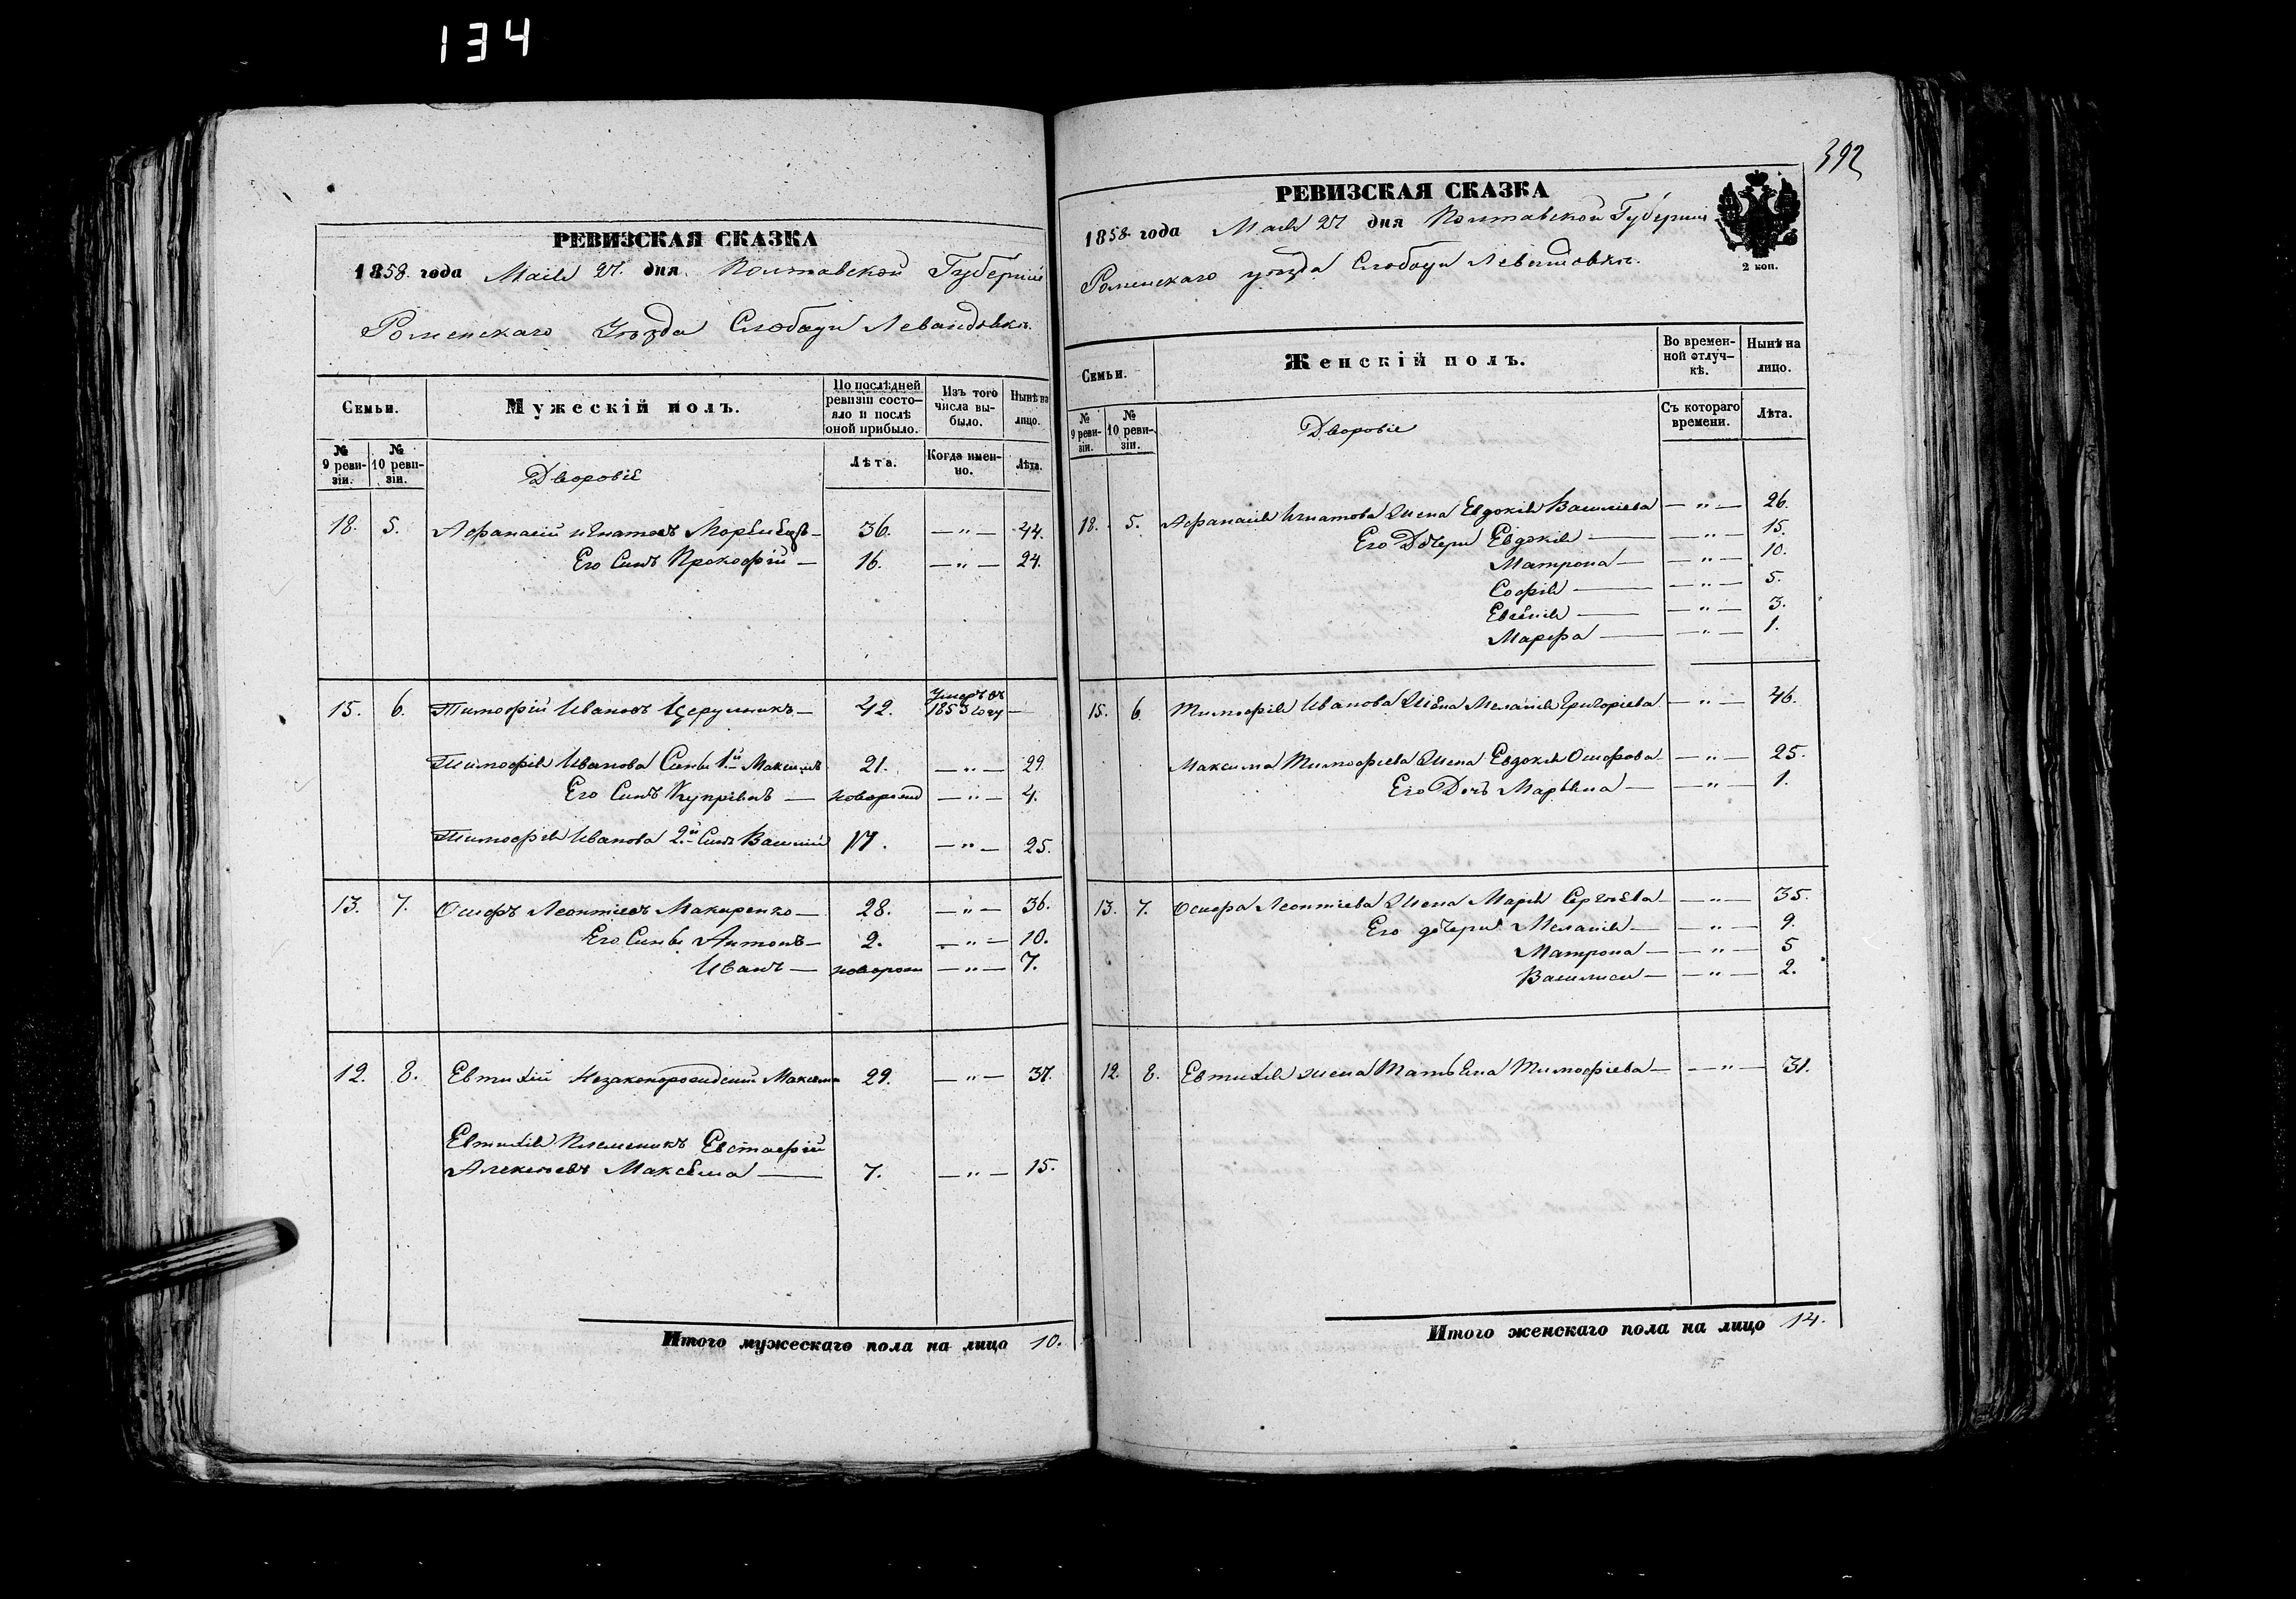 134
РЕВИЗСКАЯ СКАЗКА
1858 года Маія 27 дня Полтавской Губерніи
Роменскаго Уѣзда Слободи Левандовки.
Семьи.
Мужескій полъ.
По послѣдней ревизіи состояло и послѣ оной прибыло.
Изъ того числа выбыло.
Нынѣ на лицо.
№ 9 ревизіи.
№ 10 ревизіи.
Дворовіе
Лѣта.
Когда именно.
Лѣта.
18. 5. Афанасій Игнатовъ — 36. — „ — 44.
Его Синъ Прокофій — 16. — „ — 24.
15. 6. Тимофій Ивановъ Церулникъ — 42. Умеръ въ 1853 году —
Тимофія Иванова Сины 1й Максимъ 21. — „ — 29.
Его Синъ Купріянъ — новорожд — „ — 4.
Тимофія Иванова 2й Синъ Василій 17. — „ — 25.
13. 7. Осифъ Леонтіевъ Макаренко — 28. — „ — 36.
Его Сины Антонъ — 2. — „ — 10.
Иванъ — новорож — „ — 7.
12. 8. Евтихій Незаконорожденій 29. — „ — 37.
Евтихія Племеникъ Евстафій
Алексѣевъ Максѣма — 7. — „ — 15.
Итого мужескаго пола на лицо 10.
392
РЕВИЗСКАЯ СКАЗКА
1858 года Маія 27 дня Полтавской Губерніи
Роменскаго уѣзда Слободи Левандовки.
2 коп.
Семьи.
Женскій полъ.
Во временной отлучкѣ.
Нынѣ на лицо.
№ 9 ревизіи.
№ 10 ревизіи.
Дворовіе
Съ котораго времени.
Лѣта.
18. 5. Афанасія Игнатова Жена Евдокія Василіева — „ — 26.
Его Дочери Евдокія — „ — 15.
Матрона — „ — 10.
Софія — „ — 5.
— „ — 3.
Марфа — „ — 1.
15. 6. Тимофія Иванова Жена Меланія Григоріева — „ — 46.
Максима Тимофіева Жена Евдокія Осифова — „ — 25.
Его Дочь Марьяна — „ — 1.
13. 7. Осифа Леонтіева Жена Марія Сергѣева — „ — 35.
Его дочери Меланія — „ — 9.
Матрона — „ — 5
Василиса — „ — 2.
12. 8. Евтихія жена Татьяна Тимофіева — „ — 31.
Итого женскаго пола на лицо 14.